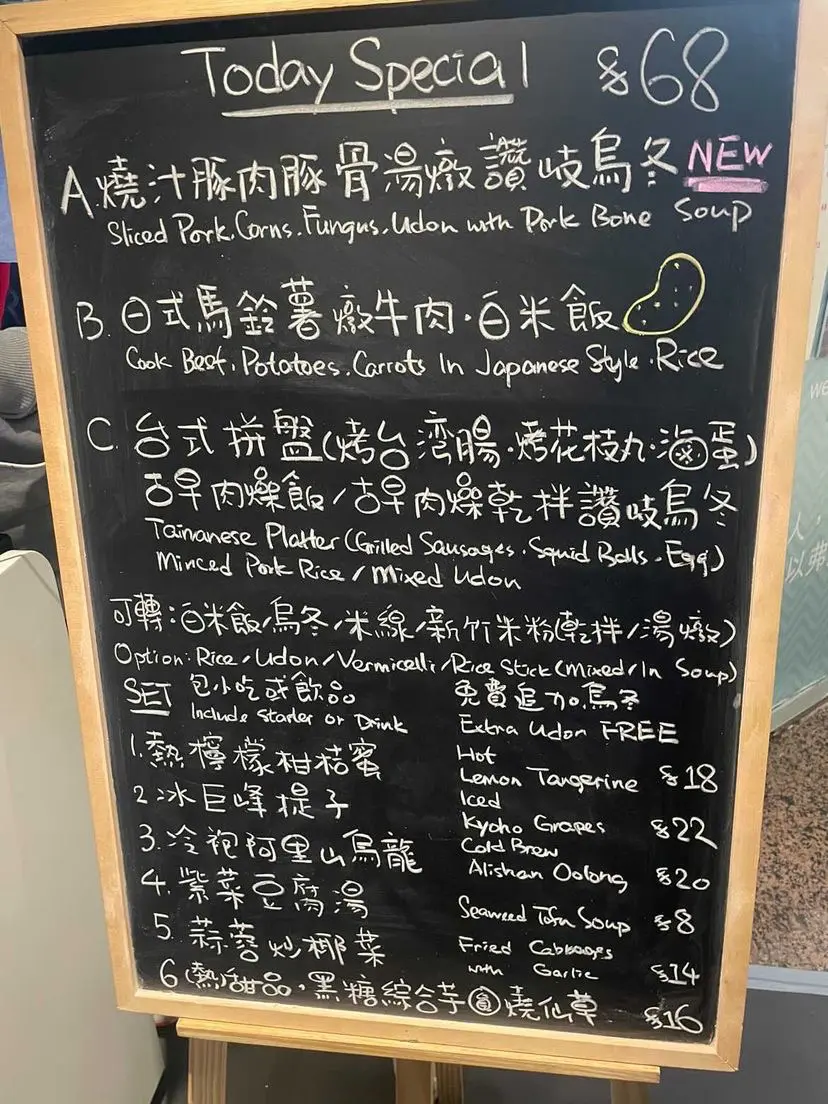 Today Special $68
A.燒汁豚肉豚骨湯燉讚岐烏冬 NEW
Sliced Pork.Corns.Fungus.Udon with Pork Bone Soup
B.日式馬鈴薯燉牛肉·白米飯
Cook Beef.Potatoes.Carrots In Japanese Style.Rice
C.台式拼盤(烤台湾腸·烤花枝丸·滷蛋)
古早肉燥飯/古早肉燥乾拌讚岐烏冬
Tainanese Platter (Grilled Sausages.Squid Balls.Egg)
Minced Pork Rice/Mixed Udon
可轉:白米飯/烏冬/米線/新竹米粉(乾拌/湯燉)
Option:Rice/Udon/Vermicelli/Rice Stick(Mixed/In Soup)
SET 包小吃或飲品
Include Starter or Drink
免費追加烏冬
Extra Udon FREE
1.熱檸檬柑桔蜜
Hot
Lemon Tangerine $18
2.冰巨峰提子
Iced
Kyoho Grapes $22
3.冷袍阿里山烏龍
Cold Brew
Alishan Oolong $20
4.紫菜豆腐湯
Seaweed Tofu Soup $8
5.蒜蓉炒椰菜
Fried Cabbages
with Garlic $14
6(熱)甜品·黑糖綜合芋圓燒仙草 $16